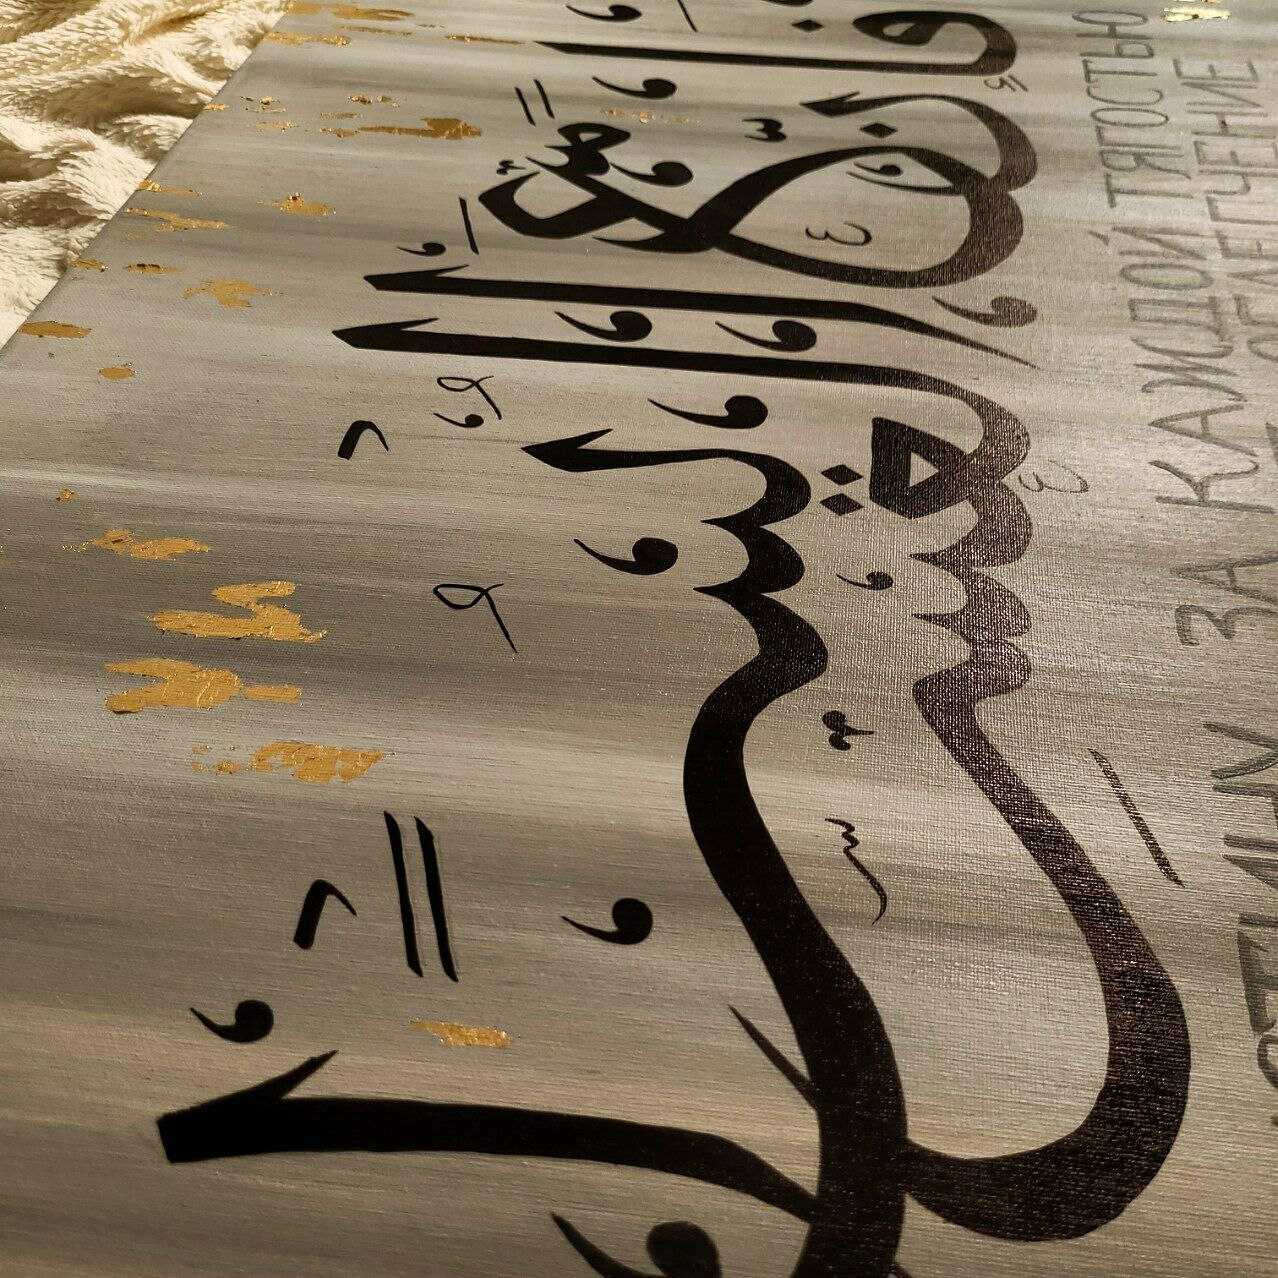 فَإِنَّ مَعَ الْعُسْرِ يُسْرًا
ЗА КАЖДОЙ ТЯГОСТЬЮ
ОБЛЕГЧЕНИЕ